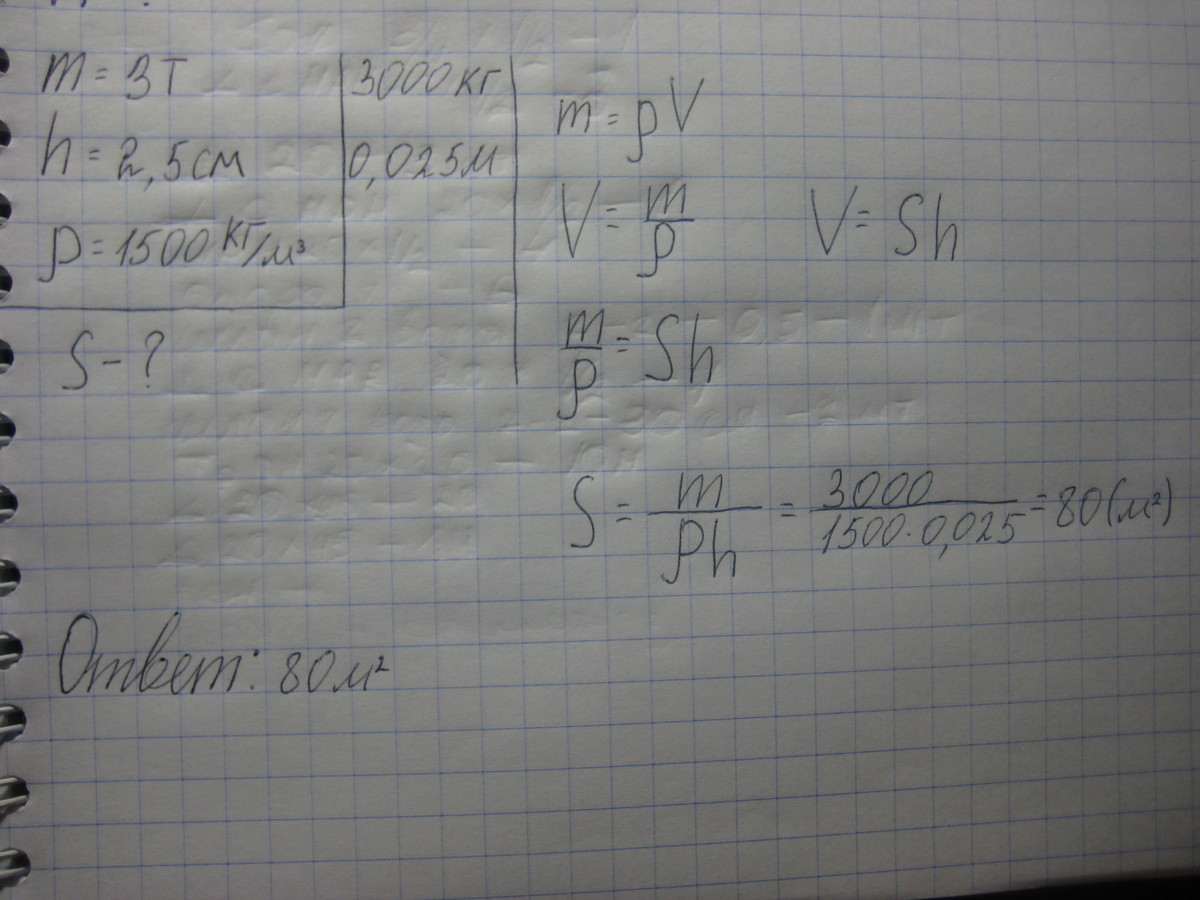 m = 3т 3000 кг
h = 2,5 см 0,025 м
ρ = 1500 кг/м³
S - ?
m = ρV
V = m/ρ V = Sh
m/ρ = Sh
S = m/ρh = 3000/1500·0,025 = 80 (м²)
Ответ: 80 м²